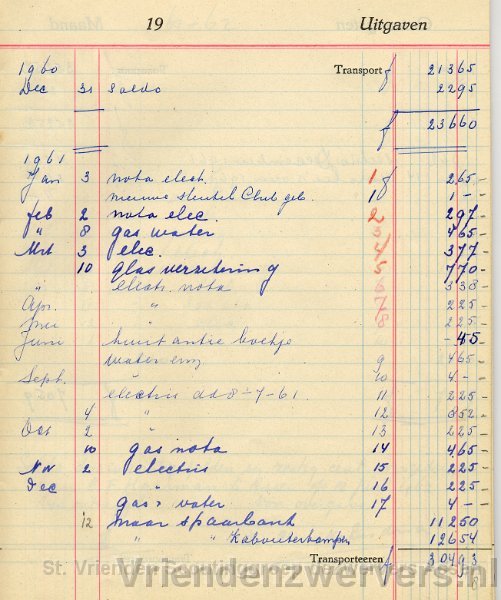 19 Uitgaven
1960 Transport f 213 65
Dec 31 Saldo 22 95
f 236 60
1961
Jan 3 nota elect. 1 f 2 65 -
nieuwe sleutel Club geb. 1 -
feb 2 nota elec. 2 2 97 -
" 8 gas water 3 4 65 -
Mrt 3 elec. 4 3 77 -
10 glas verzekering 5 7 70 -
" electr. nota 6 3 38 -
Apr. " 7 2 25 -
8 2 25 -
Juni huur antie boekje 45 -
water em 9 4 65 -
Sept. 10 4 -
electris dd 8-7-61 11 2 25 -
4 " 12 52 -
Oct 2 " 13 2 25 -
10 gas nota 14 4 65 -
Nov 2 electris 15 2 25 -
Dec 16 2 25 -
gas water 17 4 -
12 naar spaarbank 112 50
" " Kabouterkampen 126 54
Transporteeren f 304 93
St. Vrienden
Vriendenzwervers.nl